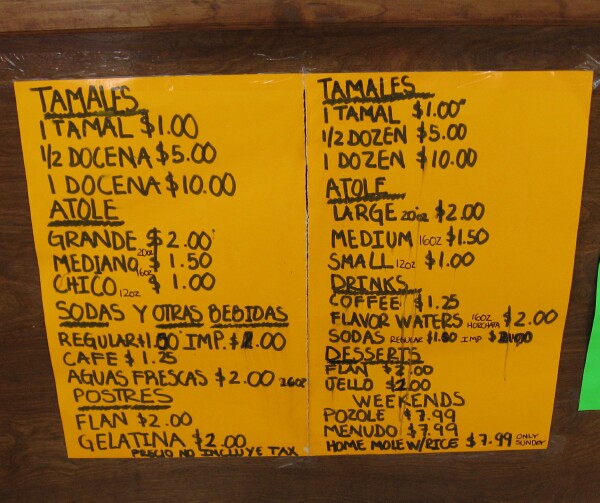 TAMALES
1 TAMAL $1.00
1/2 DOCENA $5.00
1 DOCENA $10.00
ATOLE
GRANDE 20oz $2.00
MEDIANO 16oz $1.50
CHICO 12oz $1.00
SODAS Y OTRAS BEBIDAS
REGULAR $1.00 IMP. $2.00
CAFE $1.25
AGUAS FRESCAS $2.00 16oz
POSTRES
FLAN $2.00
GELATINA $2.00
PRECIO NO INCLUYE TAX
TAMALES
1 TAMAL $1.00
1/2 DOZEN $5.00
1 DOZEN $10.00
ATOLE
LARGE 20oz $2.00
MEDIUM 16oz $1.50
SMALL 12oz $1.00
DRINKS
COFFEE $1.25
FLAVOR WATERS 16oz HORCHATA $2.00
SODAS REGULAR IMP
DESSERTS
FLAN $2.00
JELLO $2.00
WEEKENDS
POZOLE $7.99
MENUDO $7.99
HOME MOLE W/RICE $7.99 ONLY SUNDAY